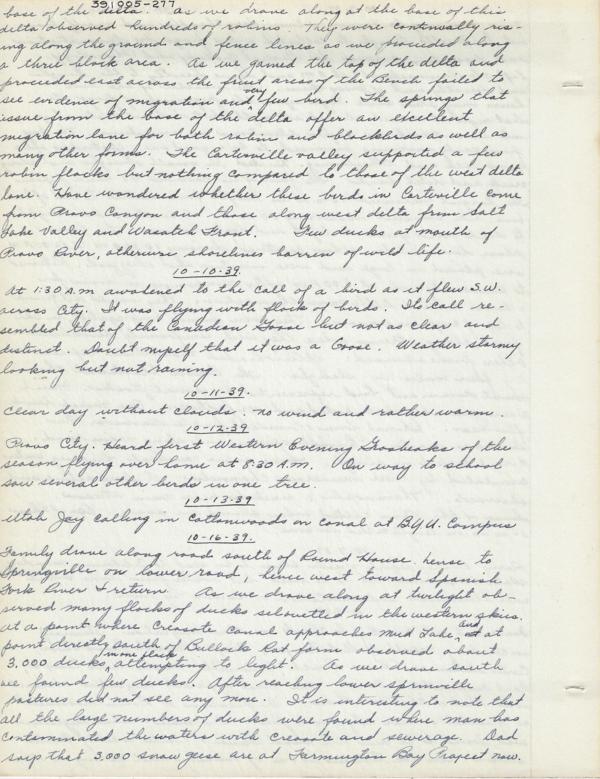 39,1995-277
base of the delta. As we drove along at the base of this
delta observed hundreds of robins. They were continually ris-
ing along the ground and fence lines as we proceeded along
a three block area. As we gained the top of the delta and
proceeded east across the fruit areas of the Bench failed to
see evidence of migration and very few bird. The springs that
issue from the base of the delta offer an excellent
migration lane for both robin and blackbirds as well as
many other forms. The Carterville valley supported a few
robin flocks but nothing compared to those of the west delta
lane. Have wondered whether these birds in Carterville come
from Provo Canyon and those along west delta from Salt
Lake Valley and Wasatch Front. Few ducks at mouth of
Provo River, otherwise shorelines barren of wild life.
10-10-39.
At 1:30 A.M awakened to the call of a bird as it flew S.W.
across City. It was flying with flock of birds. Its call re-
sembled that of the Canadian Goose but not as clear and
distinct. Doubt myself that it was a Goose. Weather stormy
looking but not raining.
10-11-39.
Clear day without clouds. no wind and rather warm.
10-12-39
Provo City. Heard first Western Evening Grosbeaks of the
season flying over home at 8:30 A.M. On way to school
saw several other birds in one tree.
10-13-39
Utah Jay calling in Cottonwoods on canal at B.Y.U. Campus
10-16-39.
Family drove along road south of Round House hense to
Springville on lower road, hence west toward Spanish
Fork River & return. As we drove along at twilight ob-
served many flocks of ducks selouetted in the western skies.
at a point where Creasote Canal approaches Mud Lake, and at
point directly south of Bullock Rat farm observed about
3,000 ducks in one flock attempting to light. As we drove south
we found few ducks. After reaching lower sprinville
pastures did not see any more. It is interesting to note that
all the large numbers of ducks were found where man has
contaminated the waters with creasote and sewerage. Dad
says that 3,000 snow geese are at Farmington Bay Project now.